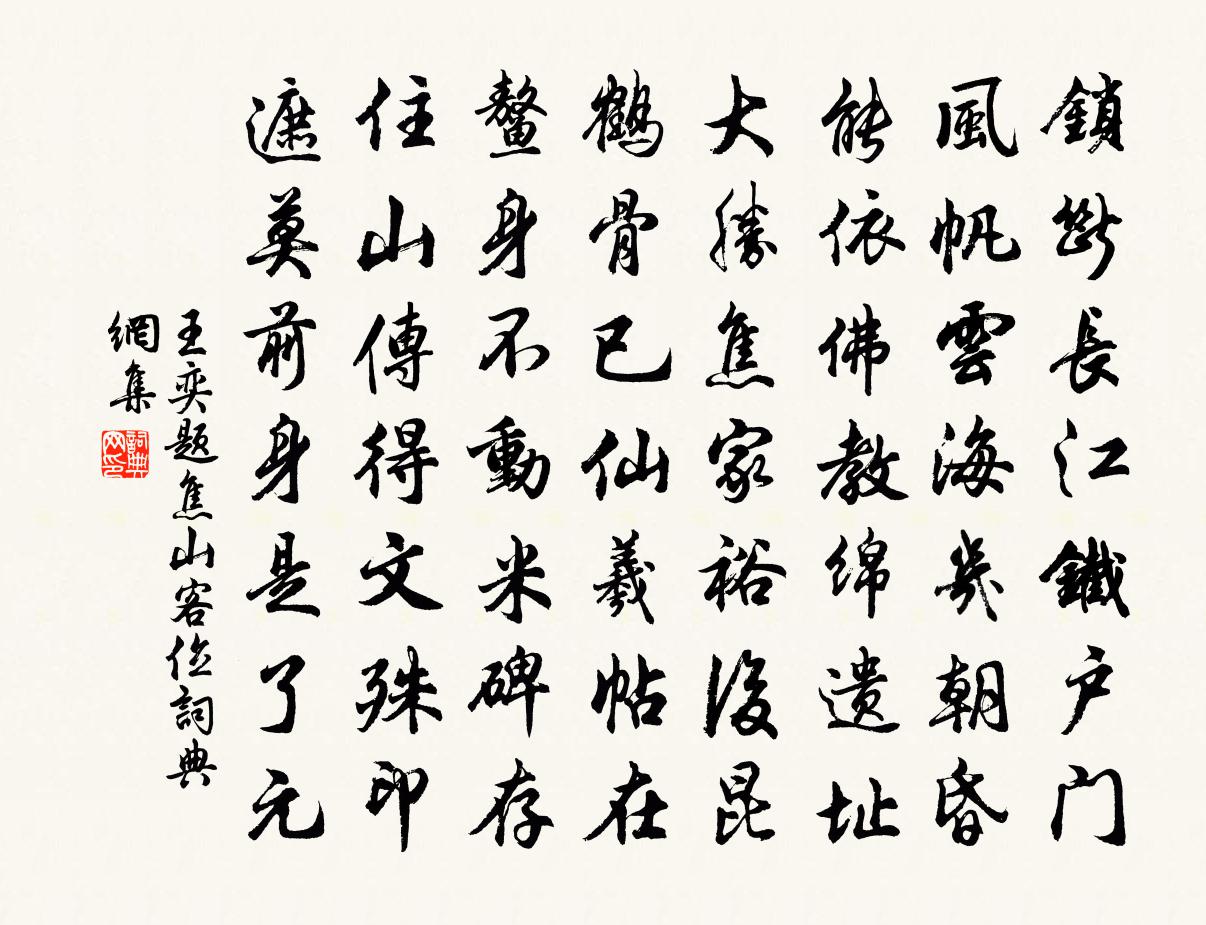 鎖斷長江鐵户门
風帆雲海幾朝昏
能依佛教绵遗址
大勝焦家裕後昆
鶴骨已仙羲帖在
鳌身不動米碑存
住山傳得文殊印
遮莫前身是了元
王奕题焦山客位詞典
網集
詞典
网印